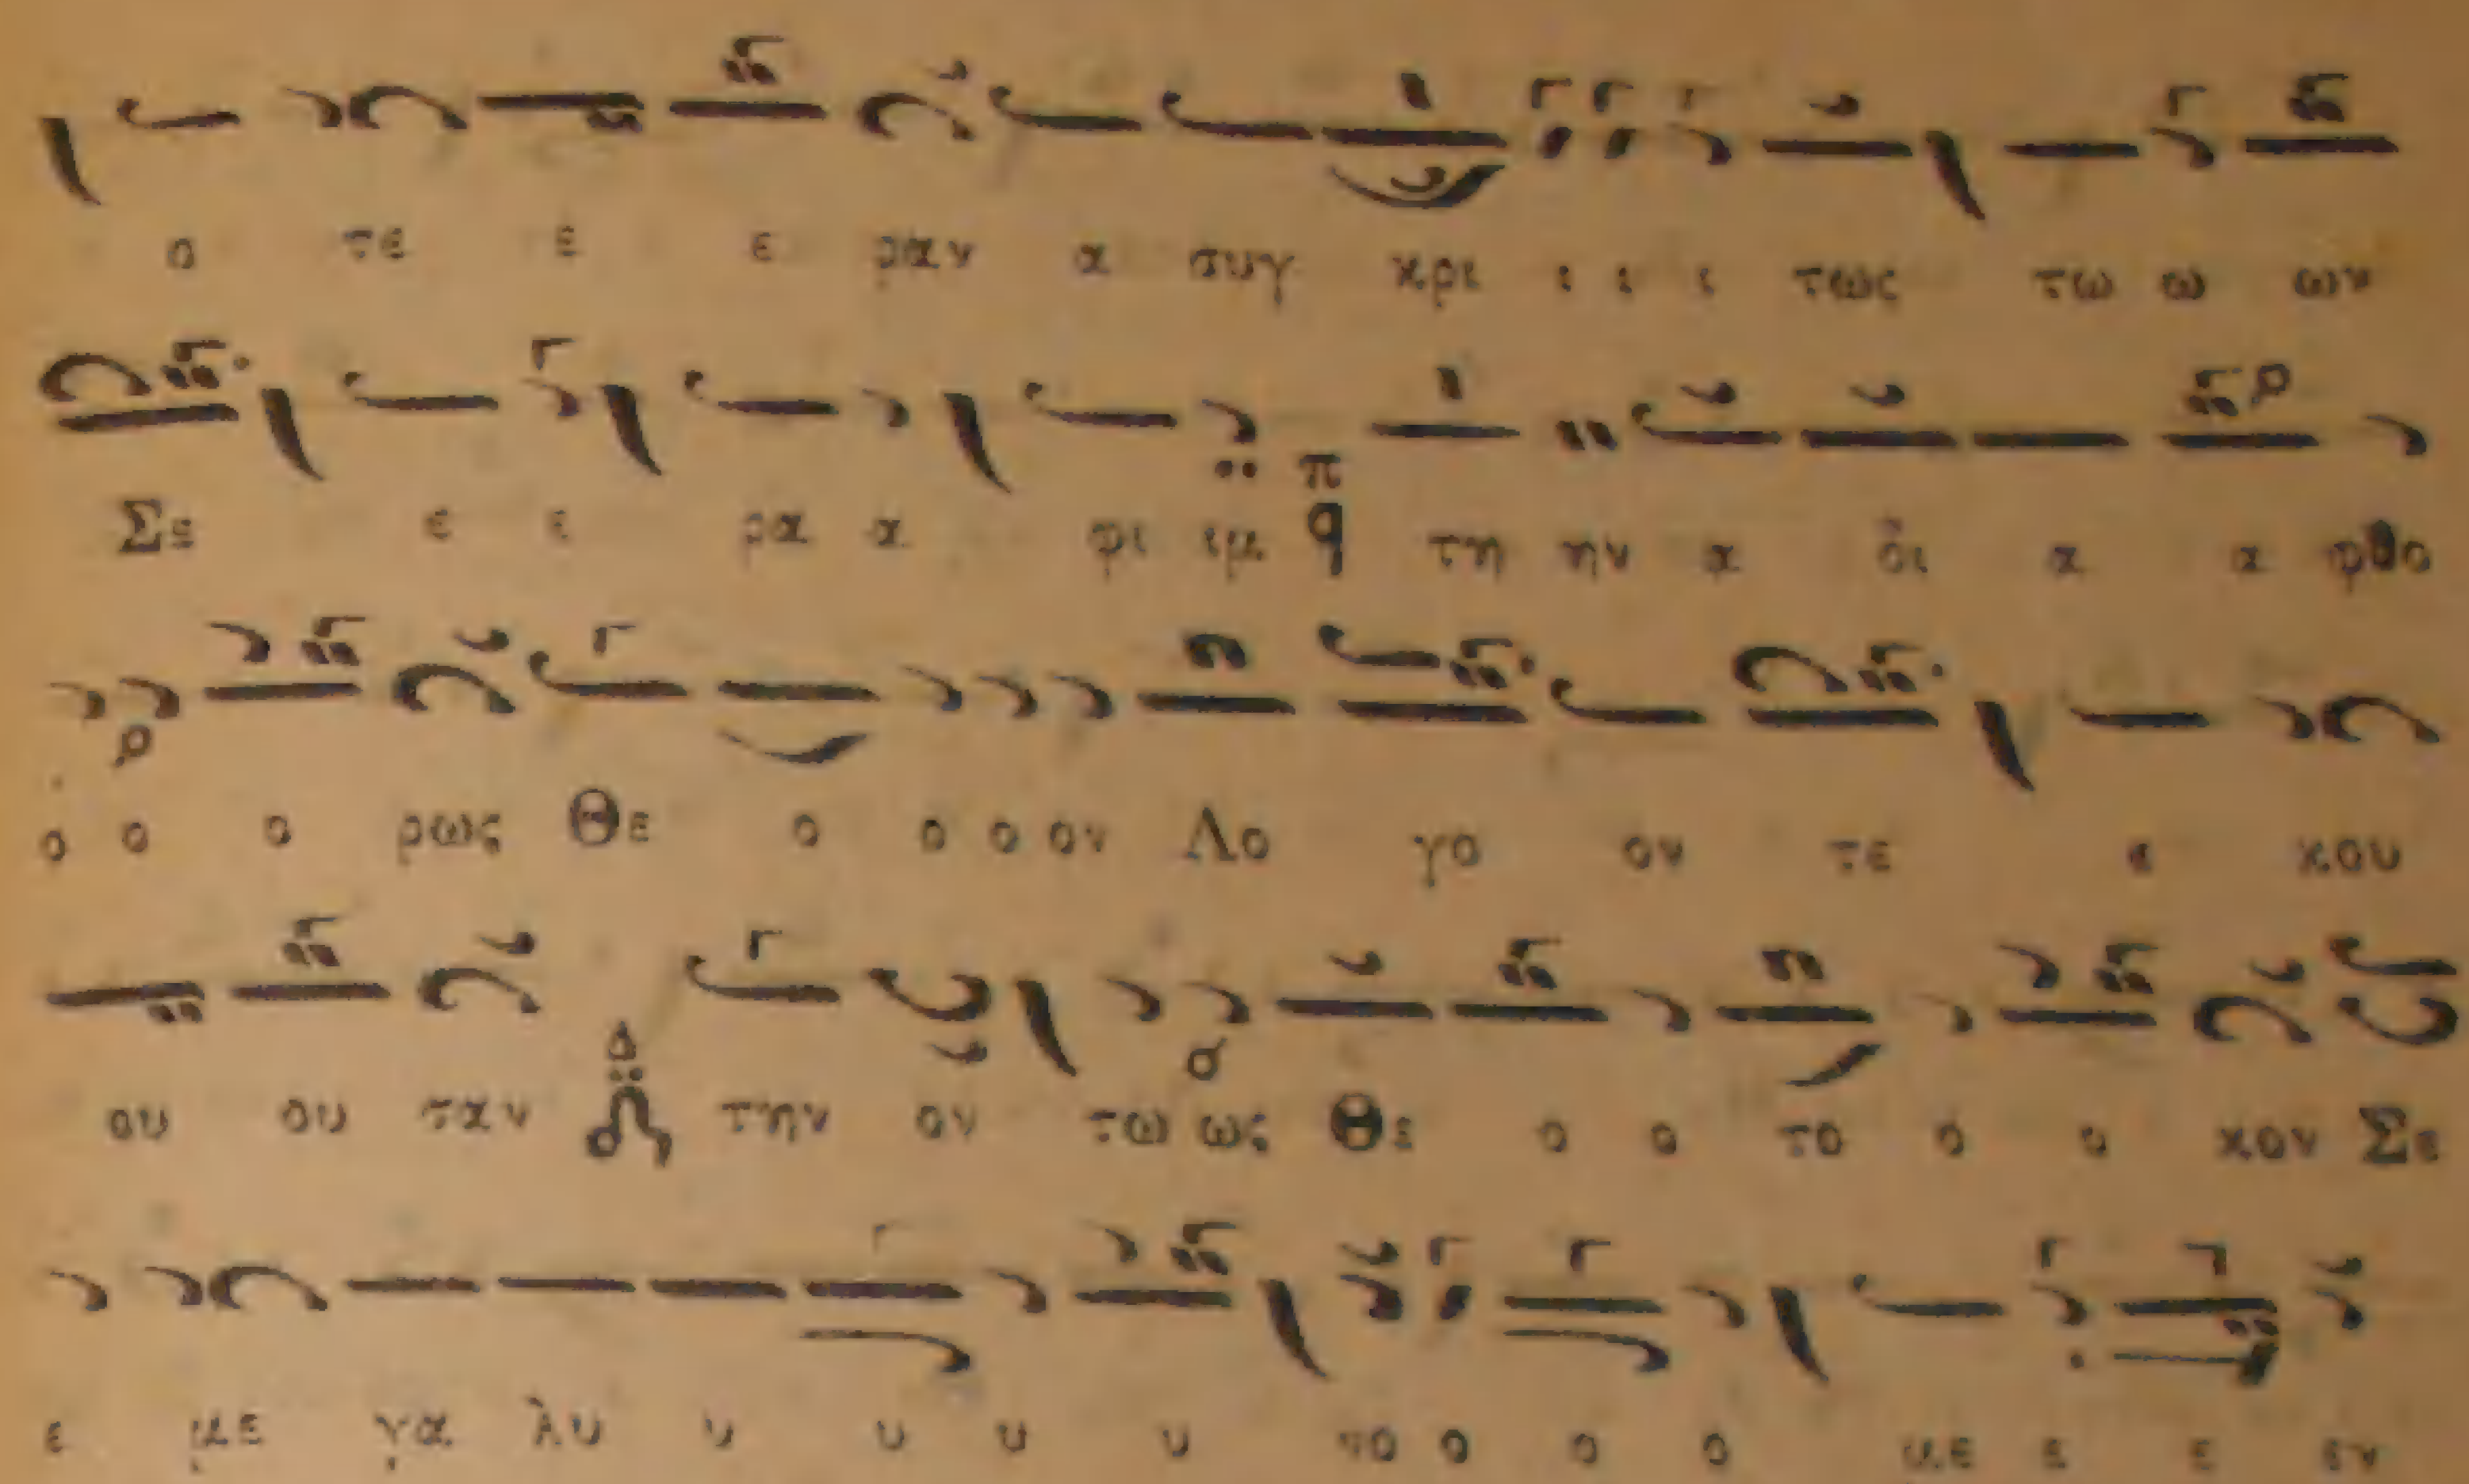 ο τε ε ε ραν α συγ κρι ι ι ι τως τω ω ων
Σε ε ε ρα α φι ιμ π q τη ην α δι α α φθο
ο ο ο ρως Θε ο ο ο ον Λο γο ον τε ε κου
ου ου ταν Δ την ον τω ως Θε ο ο το ο ο κον Σε
ε με γα λυ υ υ υ υ νο ο ο ο με ε ε εν